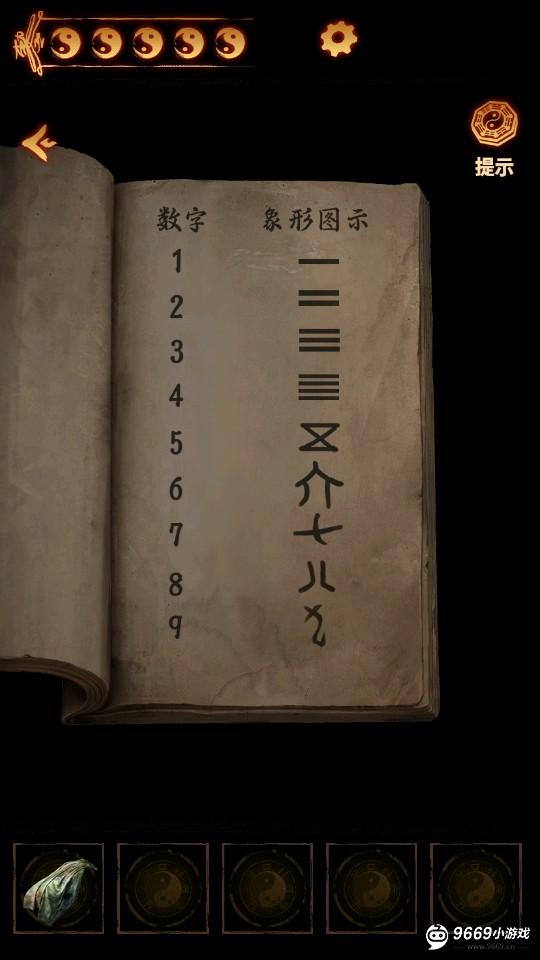 提示
数字 象形图示
1 一
2 二
3 三
4 亖
5
6
7
8
9
9669小游戏
www.9669.cn